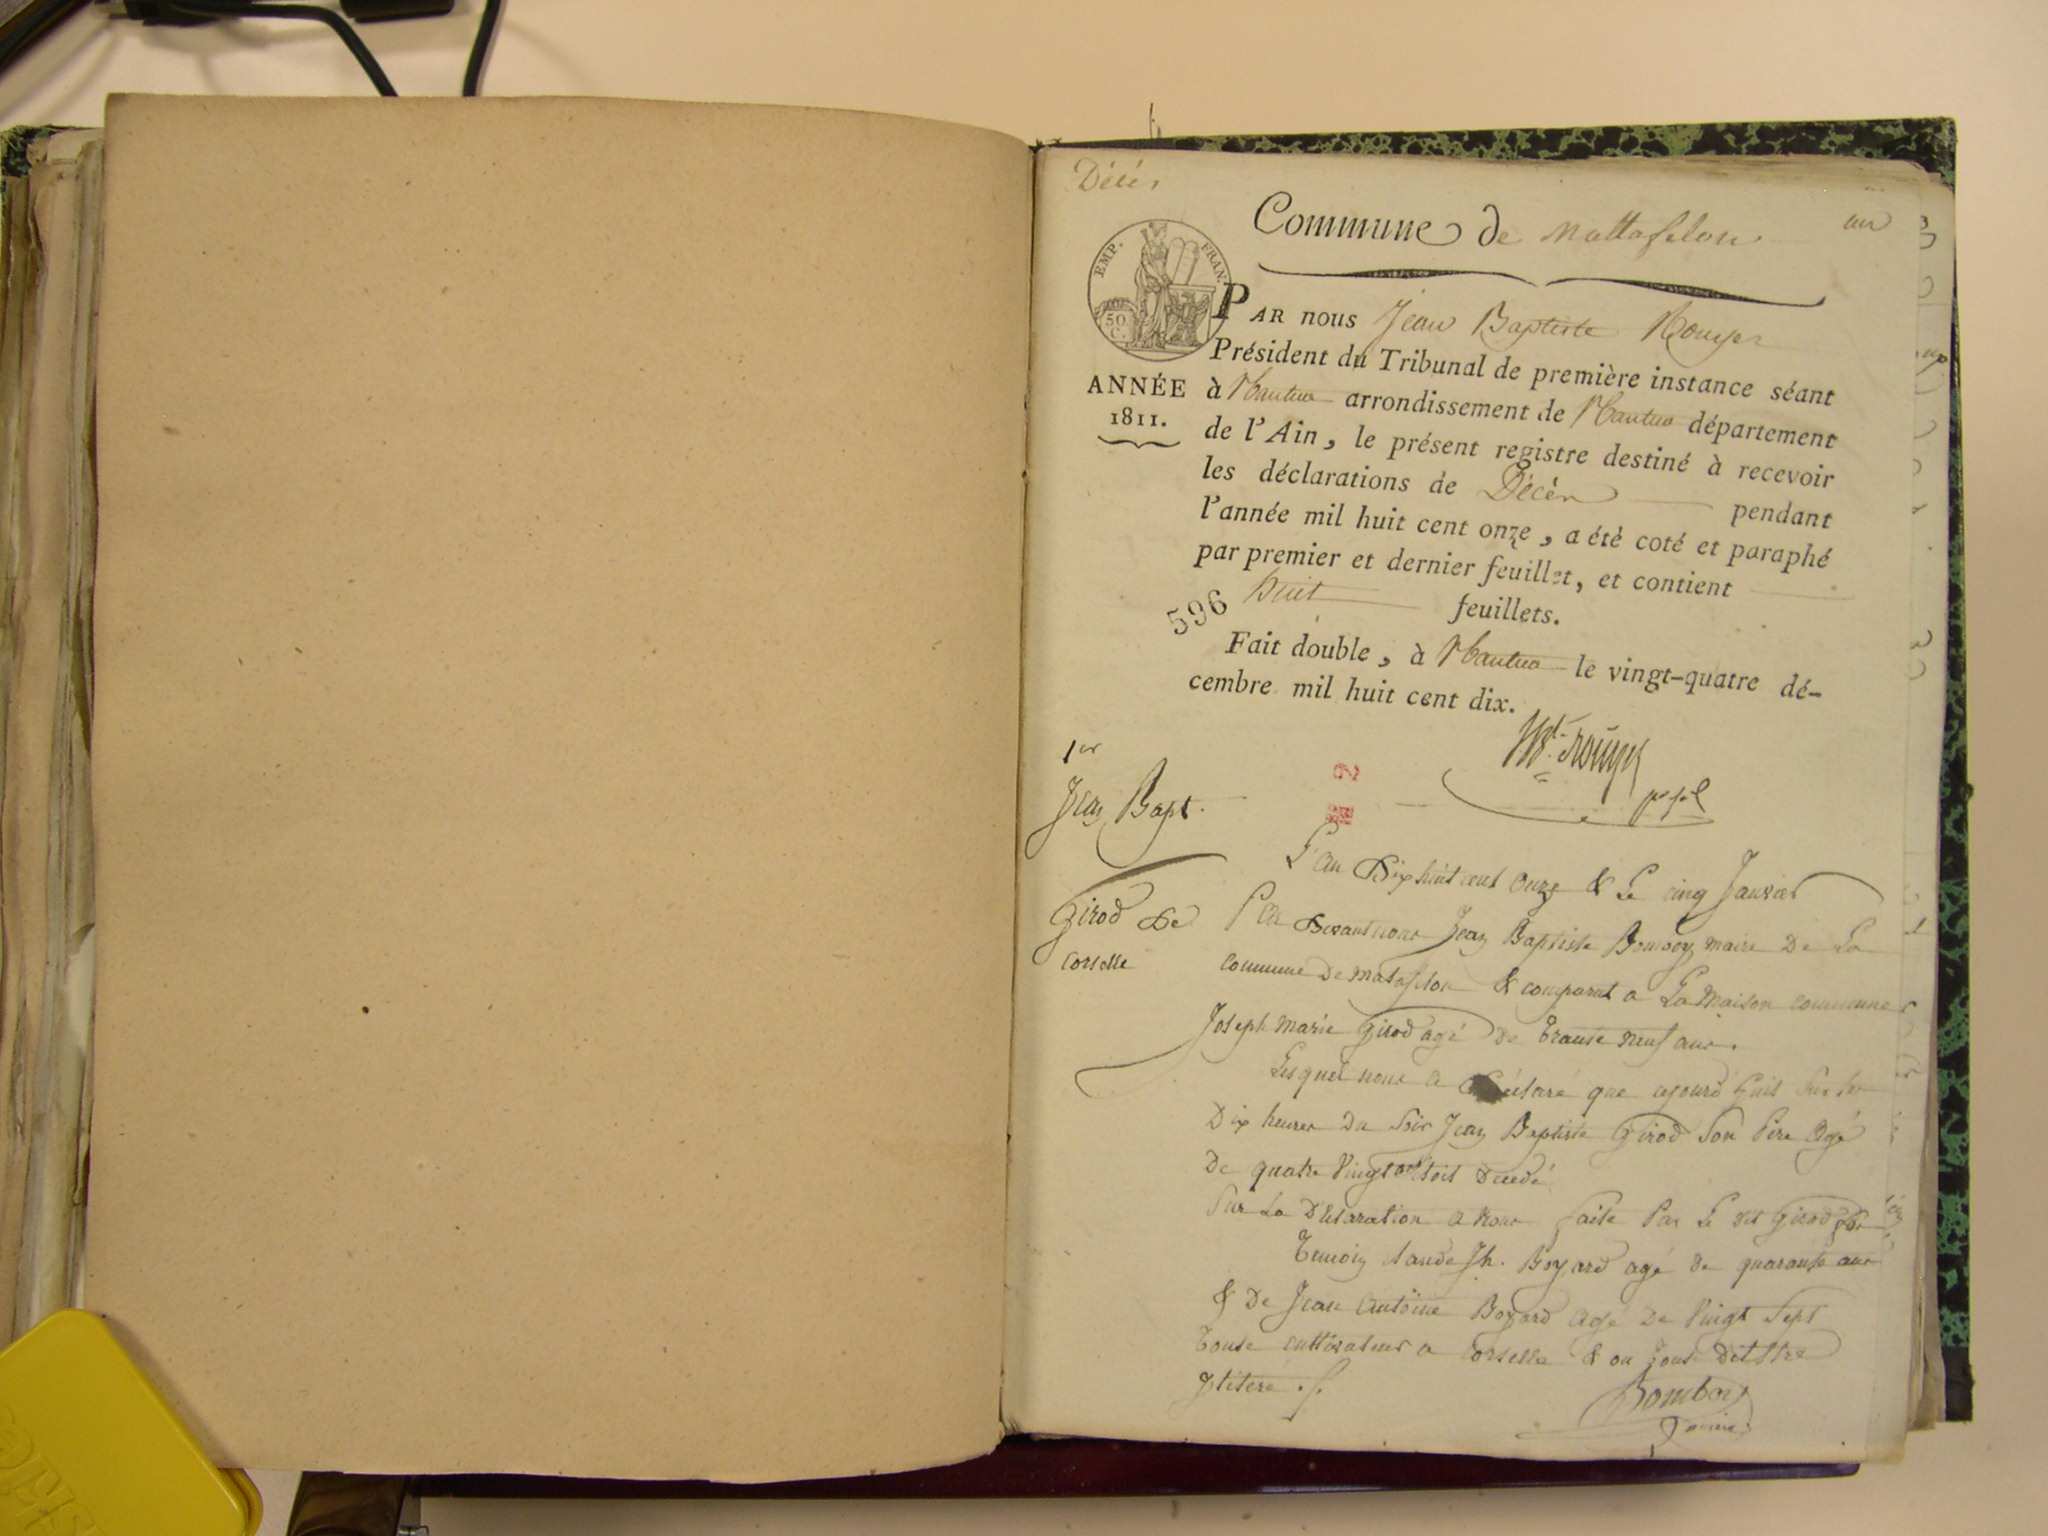 Décès
Commune de Mattafelon
un
EMP. FRAN.
50 C.
PAR nous Jean Baptiste Rouyer
Président du Tribunal de première instance séant
ANNÉE
1811.
à Nantua arrondissement de Nantua département
de l'Ain, le présent registre destiné à recevoir
les déclarations de Décès pendant
l'année mil huit cent onze, a été coté et paraphé
par premier et dernier feuillet, et contient
huit feuillets.
596
Fait double, à Nantua le vingt-quatre dé-
cembre mil huit cent dix.
1er
Jean Bapt.
Girod De
Corselle
L'an Dix huit cent onze & Le cinq Janvier
Par Devant nous Jean Baptiste Bomboy maire De La
commune De Matafelon & comparut a La Maison commune
Joseph Marie Girod agé de trante neuf ans.
Lesquel nous a déclaré que ajourd'huit Sur les
Dix heures Du Soir Jean Baptiste Girod Son Père Agé
De quatre Vingt soit Decedé
Sur La Déclaration a Nous faite Par Le dit Girod
Temoin Claude Jh. Boyard agé de quarante ans
& De Jean Antoine Boyard Agé De Vingt Sept
Touse cultivateur a Corselle & on Touse dit Etre
Jlitere .f.
Bomboy
maire